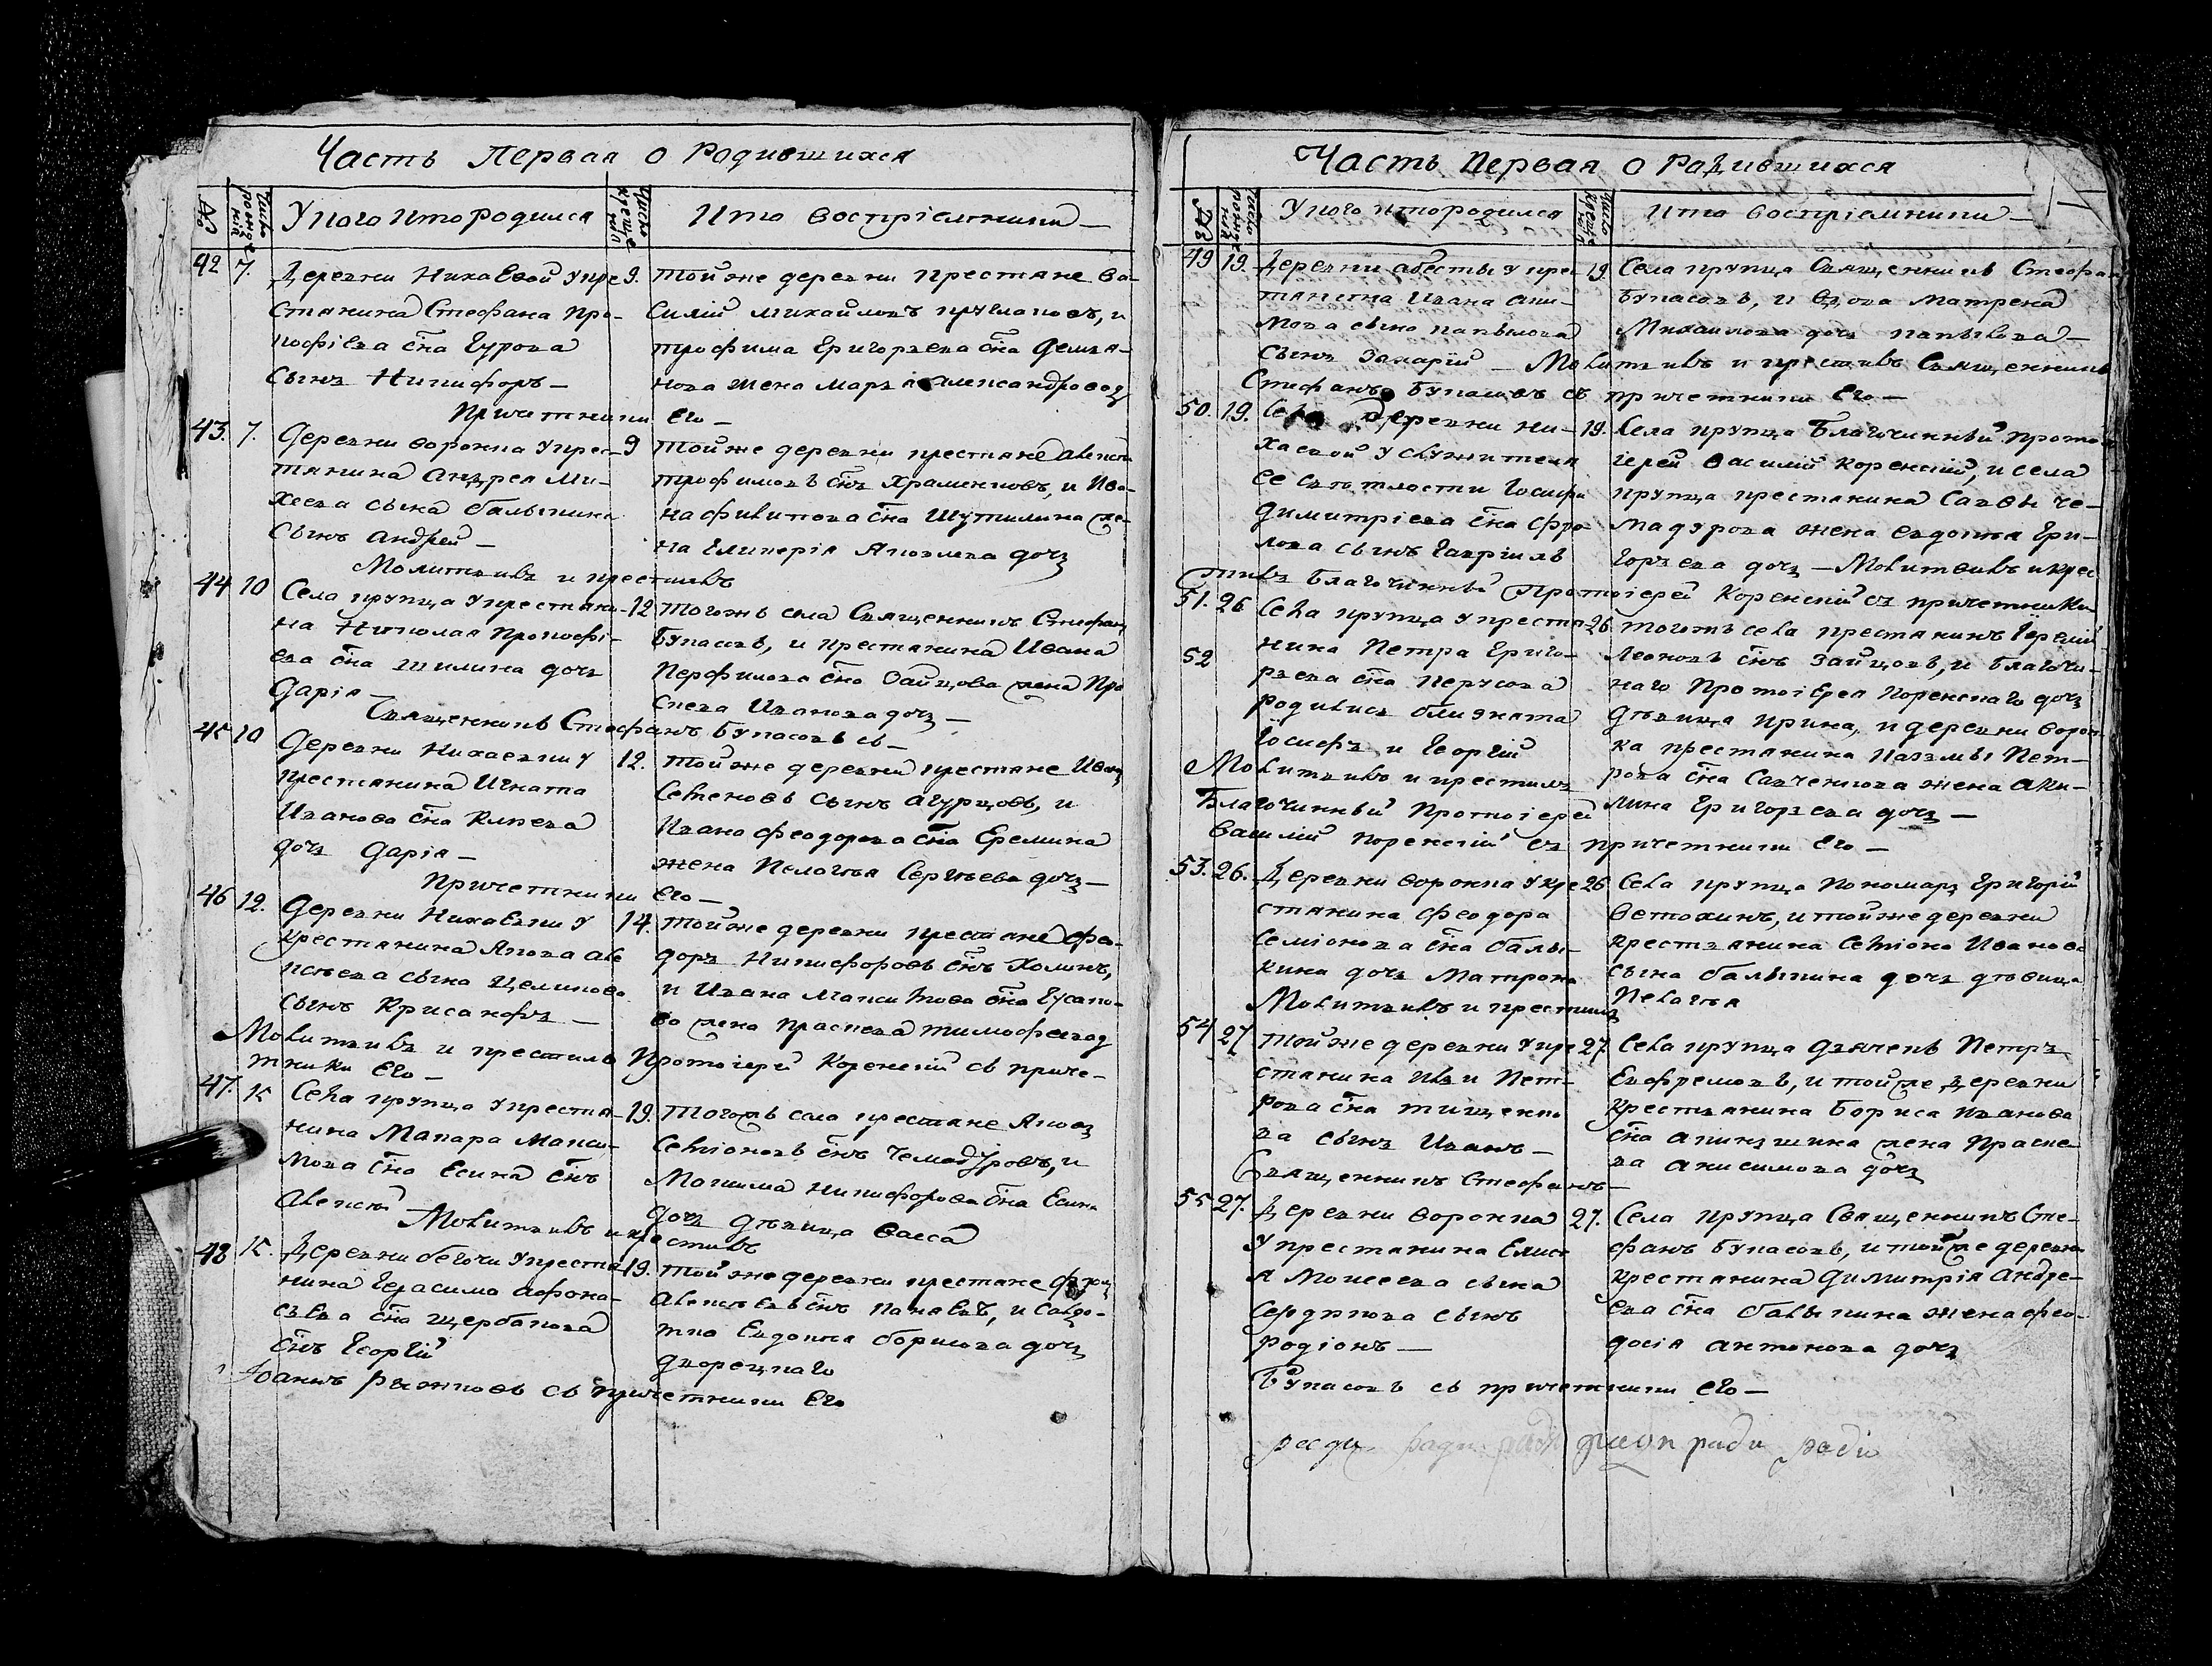 Часть Первая о Родившихся
№
Число рожде нія
У кого кто родился
Число креще нія
Кто восприемники
42 7. Деревни Нихаевой у кре-
стянина Стефана Про-
кофіева сна Гурова
сынъ Никифоръ —
9. той же деревни крестяне Ва-
силій Михайловъ Кругляковъ, и
трофима Григорьева сна
жена Марья Александрова д
Причетники его —
43. 7. Деревни Воронка у крес-
тянина Андрея Ми-
хеева сына Балыкина
сынъ Андрей —
9 той же деревни крестяне Алексей
трофимовъ снъ Храменковъ, и Ива-
на Филипова сна Шутилина же-
на Гликерія Яковлева дочь
Молитвивъ и крестивъ
44 10 Села Крупца у крестяни-
на Николая Прокофі-
ева сна Шилина дочь
Дарія
12 тогожъ села Священникъ Стефанъ
Букасовъ, и крестянина Ивана
Перфилова сна Зайцова жена Про
Иванова дочь —
Священникъ Стефанъ Букасовъ съ —
45 10 Деревни Нихаевки у
крестянина Игната
Иванова сна Клюева
дочь Дарія —
12. той же деревни крестяне Иванъ
Семеновъ сынъ Агурцовъ, и
Ивана Феодорова сна Еремина
жена Пелогея Сергеева дочь —
Причетники его —
46 12. Деревни Нихаевки у
крестянина Якова Але
ксеева сына Целикова
сынъ Крисанфъ —
14. той же деревни крестяне Фео-
доръ Никифоровъ снъ Холинъ,
и Ивана Максимова сна Гусако-
ва жена Праскева Тимофеева д
Молитвивъ и крестилъ Протоіерей Коренскій съ приче-
тники его —
47. 15 Села Крупца у крестя-
нина Макара Макси-
мова сна Есина снъ
Алексей
19. тогожъ села крестяне Яковъ
Семіоновъ снъ Чемодуровъ, и
Максима Никифорова сна Есина
дочь девица Васса
Молитвивъ и крестивъ
48 15. Деревни Бегочи у крестя-
нина Герасима Афона-
сьева сна Щербакова
снъ Георгій
19. той же деревни крестяне
Алексеевъ снъ Панаевъ, и Солдо-
тка Евдокея Борисова дочь
дворецкаго
Іоаннъ Рыжковъ съ причетники его
Часть Первая о Радившихся
№
Число рожде нія
У кого кто родился
Число креще нія
Кто восприемники —
49 19. Деревни Абесты у крес-
тянина Ивана Аки-
мова сына Канылова
сынъ Захарій —
19. Села Крупца Священникъ Стефанъ
Букасовъ, и вдова Матрена
Михаилова дочь —
Молитвивъ и крестивъ Священникъ
Стефанъ Букасовъ съ причетники его —
50. 19. Деревни Ни-
хаевой у служителя
ее светлости Іосифа
Димитріева сна Фро-
лова сынъ Гавріилъ
19. Села Крупца Благочинный Прото-
іерей Василій Коренскій, и села
Крупца крестянина Савы Че-
мадурова жена Евдокея Гри-
горьева дочь — Молитвивъ и крес
тивъ Благочинный Протоіерей Коренскій съ причетники
51. 26 Села Крупца у крестя-
52 нина Петра Григо-
рьева сна Перусова
родились близната
Іосифъ и Георгій
26 тогожъ села крестянинъ Еремій
Леоновъ снъ Зайцовъ, и Благочи-
наго Протоіерея Коренскаго дочь
девица Ирина, и деревни Ворон-
ка крестянина Козмы Пет-
рова сна Савченкова жена Аки-
лина Григорьева дочь —
Молитвивъ и крестилъ
Благочинный Протоіерей
Василій Коренскій съ причетники его —
53. 26. Деревни Воронка у кре
стянина Феодора
Семіонова сна Балы-
кина дочь Матрона
26 Села Крупца Пономарь Григорій
Ветохинъ, и той же деревни
крестьянина Семіона Иванова
сына Балыкина дочь девица
Пелагея
Молитвивъ и крестилъ
54 27 той же деревни у кре
стянина Ильи Пет-
рова сна Тищенко
ва сынъ Иванъ —
27. Села Крупца Дьячекъ Петръ
Евфремовъ, и той же деревни
крестьянина Бориса Иванова
сна Акиншина жена Праске-
ва Анисимова дочь
Священникъ Стефанъ —
55 27. Деревни Воронка
у крестянина Елисе
я Моисеева сына
Сердюкова сынъ
Родіонъ —
27. Села Крупца Священникъ Сте-
фанъ Букасовъ, и той же деревни
крестянина Димитрія Андре-
ева сна Балыкина жена Фео-
досія Антонова дочь
Букасовъ съ причетники его —
ради ради